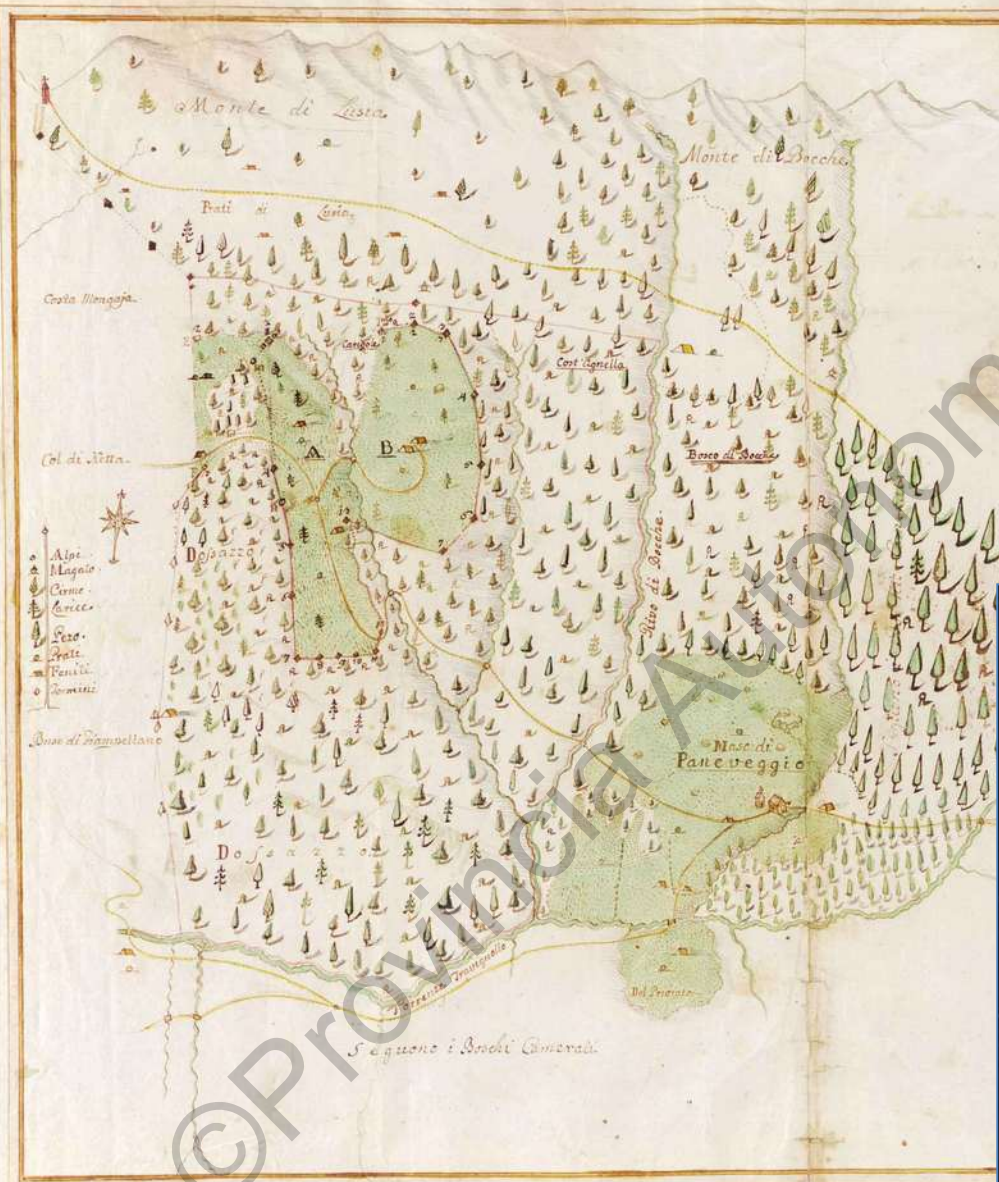 Monte di Lusia
Monte di Bocche
Prati di Lusia
Costa Mongaja
Canigola
Cost'Agnella
A
B
Col di Metta
Bosco di Bocche
Dossazzo
Alpi
Magalo
Cirmo
Larice
Pezo
Prati
Fenili
Termini
Rivo di Bocche
Maso di
Paneveggio
Dossazzo
Torrente Travignollo
Del Priorato
Seguono i Boschi Camerali
©Provincia Autonom